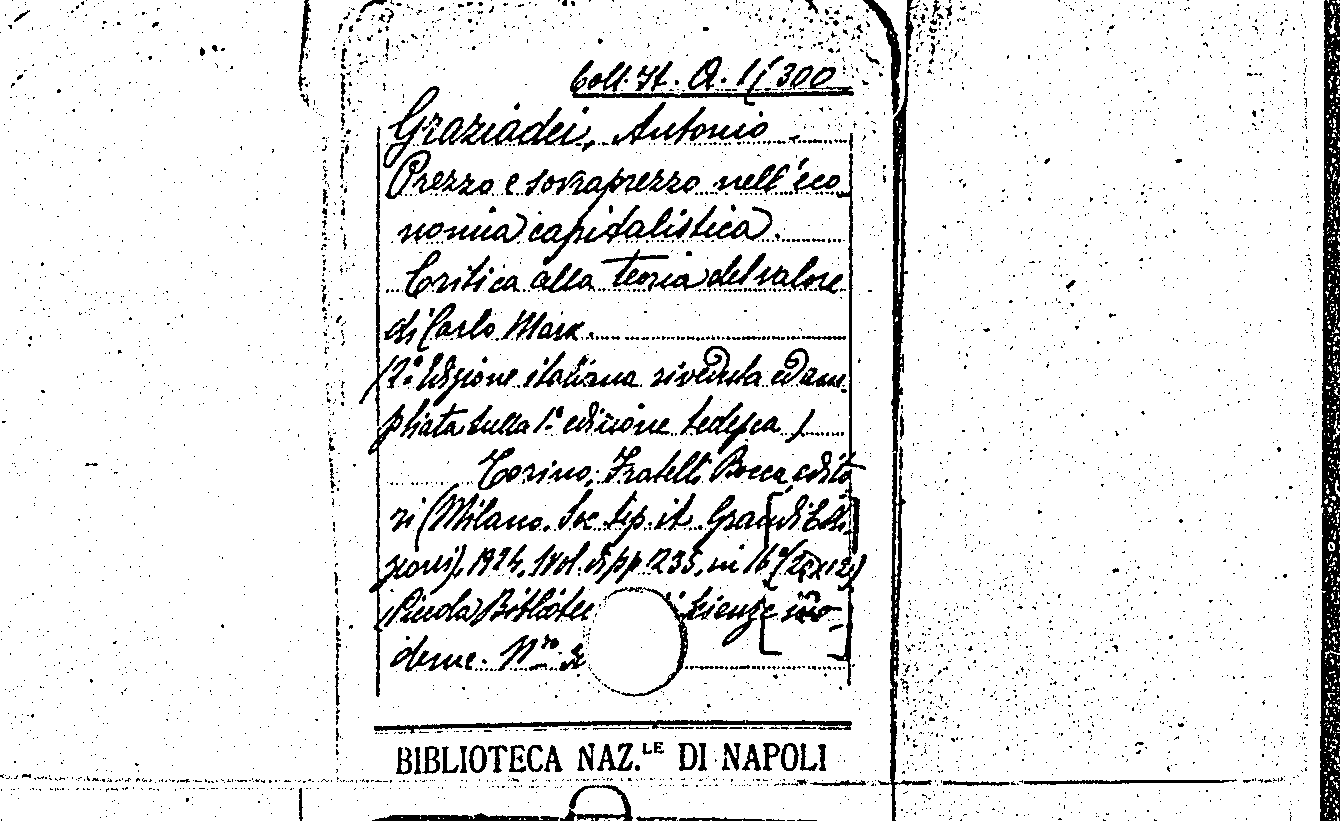 Coll. It. Q. 1/(300
Graziadei, Antonio.
Prezzo e sovraprezzo nell'eco
nomia capitalistica.
Critica alla teoria del valore
di Carlo Marx.
(2ª Edizione italiana riveduta ed am
pliata sulla 1ª edizione tedesca)
Torino, Fratelli Bocca, edito
ri (Milano, Soc. tip. it. Grandi Edi
zioni), 1924, 1 vol. di pp. 235, in 16º
(Piccola Bibliotec scienze mo-
derne. Nro
BIBLIOTECA NAZ.LE DI NAPOLI